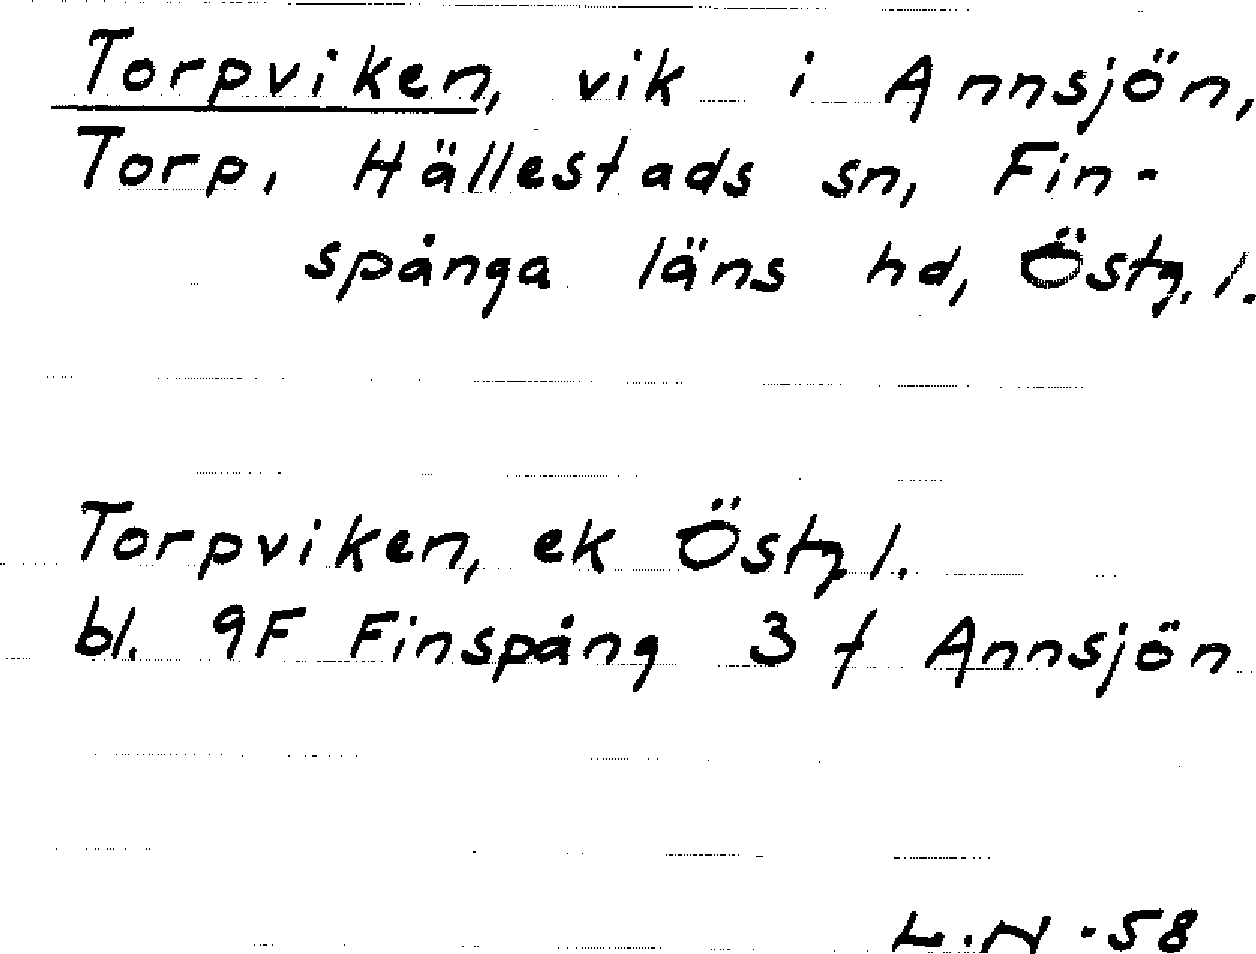 Torpviken, vik i Annsjön,
Torp, Hällestads sn, Fin-
spånga läns hd, Östg. l.
Torpviken, ek Östg l.
bl. 9F Finspång 3 f Annsjön
L.N -58